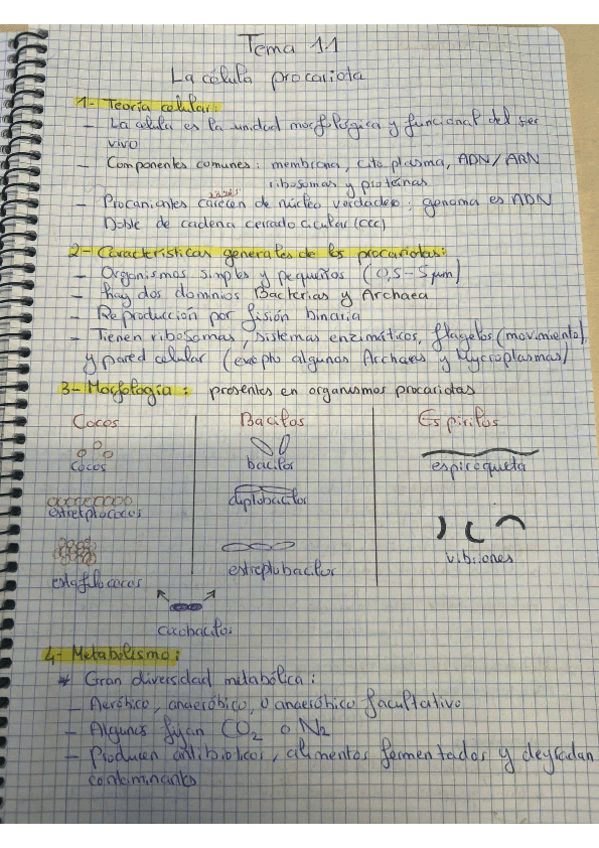 Tema 1.1
La célula procariota
1- Teoría celular:
- La célula es la unidad morfológica y funcional del ser
vivo
- Componentes comunes: membrana, citoplasma, ADN/ARN
ribosomas y proteínas
- Procariontes carecen de núcleo verdadero: genoma es ADN
Doble de cadena cerrado cicular (ccc)
2- Características generales de los procariotas:
- Organismos simples y pequeños (0,5-5 µm)
- hay dos dominios Bacterias y Archaea
- Reproducción por fisión binaria
- Tienen ribosomas, sistemas enzimáticos, flagelos (movimiento),
y pared celular (exepto algunas Archaeas y Mycroplasmas)
3- Morfología: presentes en organismos procariotas
Cocos Bacilos Espirilos
cocos bacilos espiroqueta
estretptococos diplobacilos
vibriones
estafilococos estreptobacilos
cocobacilos
4- Metabolismo:
* Gran diversidad metabólica:
- Aeróbico, anaeróbico, o anaeróbico facultativo
- Algunos fijan CO2 o N2
- Producen antibioticos, alimentos fermentados y degradan
contaminantes